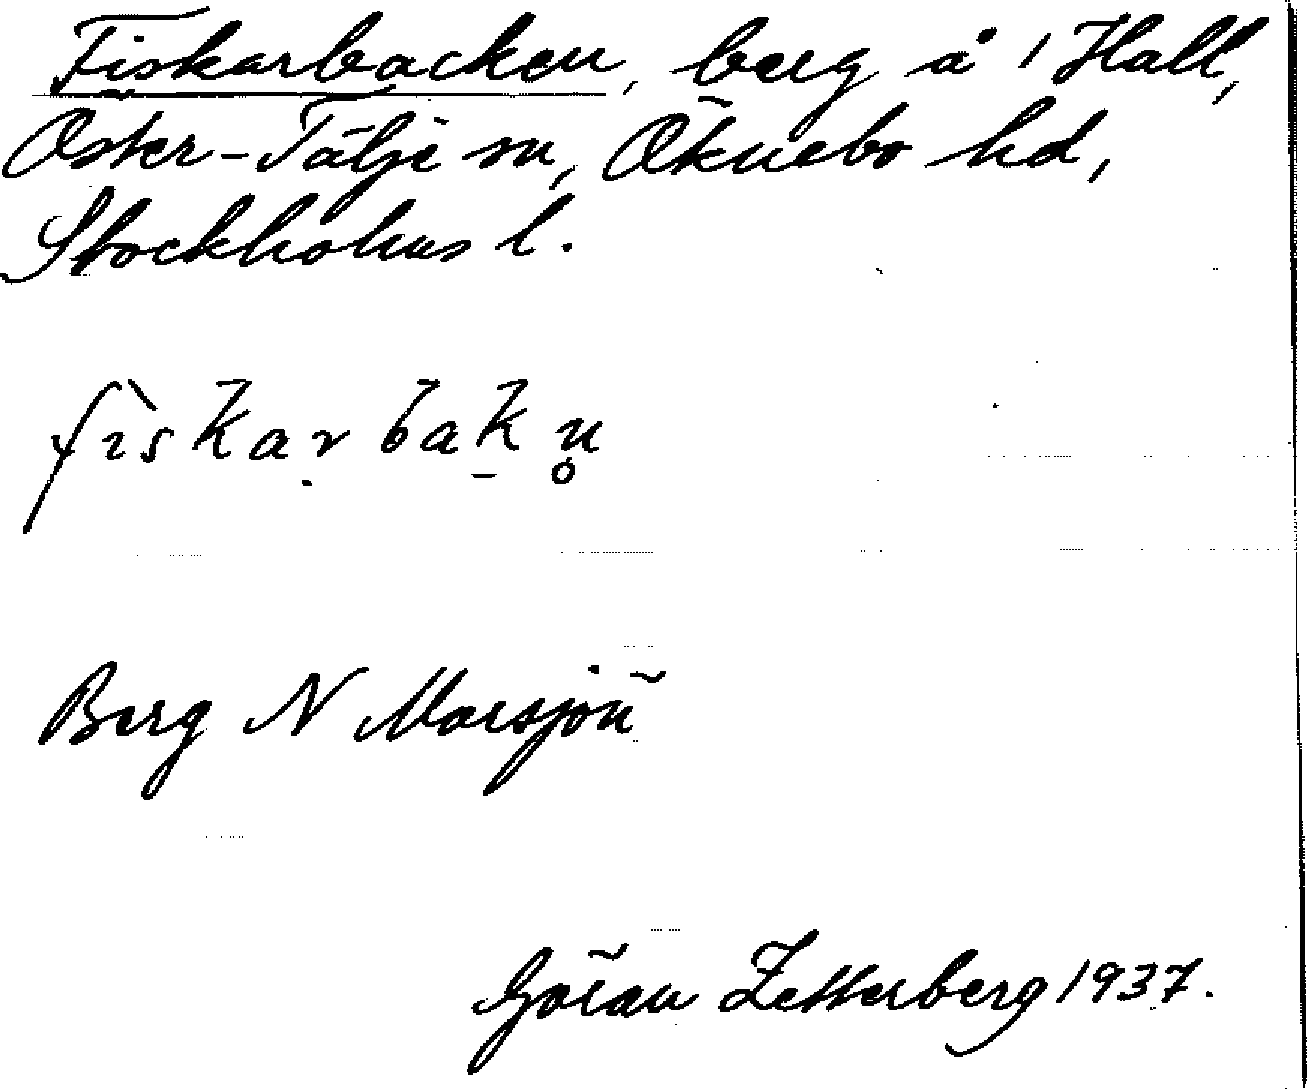 Fiskarbacken, berg å 1 Hall,
Öster-Tälje sn, Öknebo hd,
Stockholms l.
fìskarbakn̥
Berg N Morsjön
Göran Zetterberg 1937.